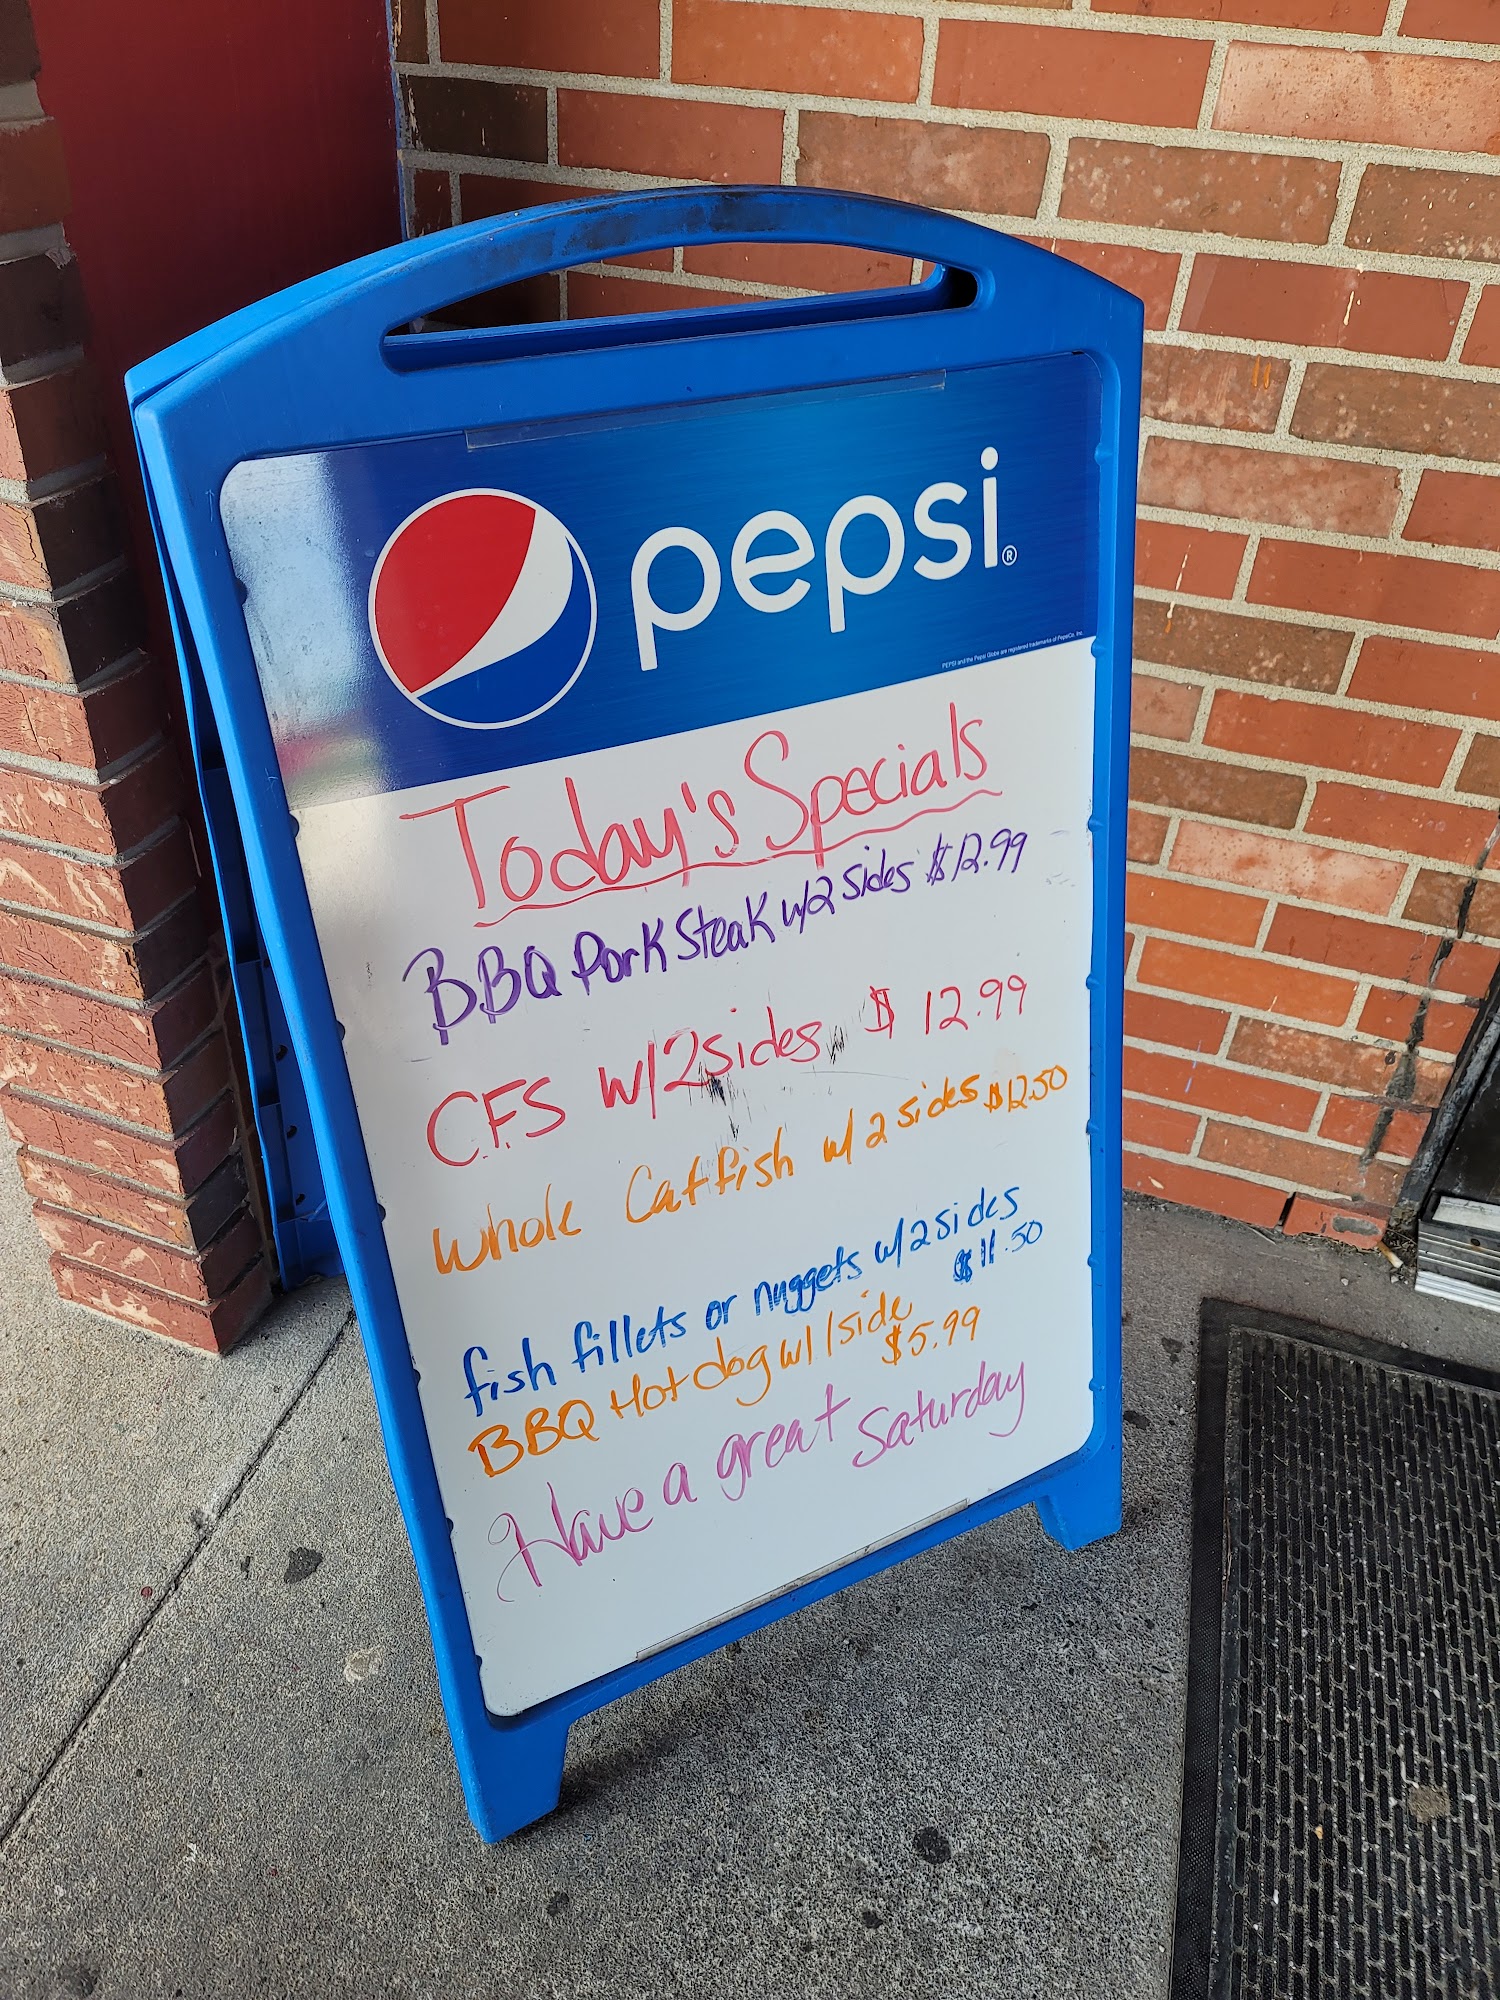 pepsi®
PEPSI and the Pepsi Globe are registered trademarks of PepsiCo, Inc.
Today's Specials
BBQ Pork Steak w/2 sides $12.99
CFS w/2sides $12.99
Whole Catfish w/2 sides $12.50
fish fillets or nuggets w/2 sides
$11.50
BBQ Hot dog w/1side
$5.99
Have a great Saturday